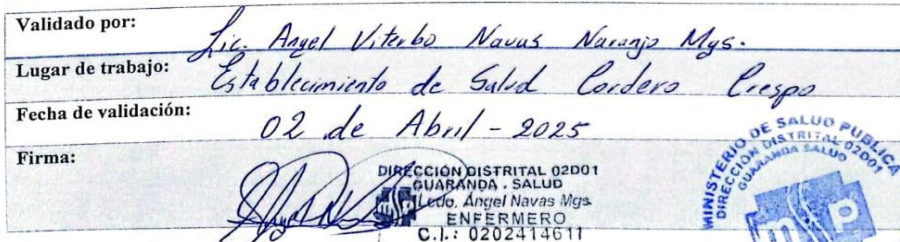 Validado por: Lic. Angel Viterbo Navas Naranjo Mgs.
Lugar de trabajo: Establecimiento de Salud Cordero Crespo
Fecha de validación: 02 de Abril - 2025
Firma:
DIRECCIÓN DISTRITAL 02D01
GUARANDA . SALUD
msp Lcdo. Ángel Navas Mgs.
ENFERMERO
C.I.: 0202414611
MINISTERIO DE SALUD PUBLICA
DIRECCIÓN DISTRITAL 02D01
GUARANDA SALUD
msp